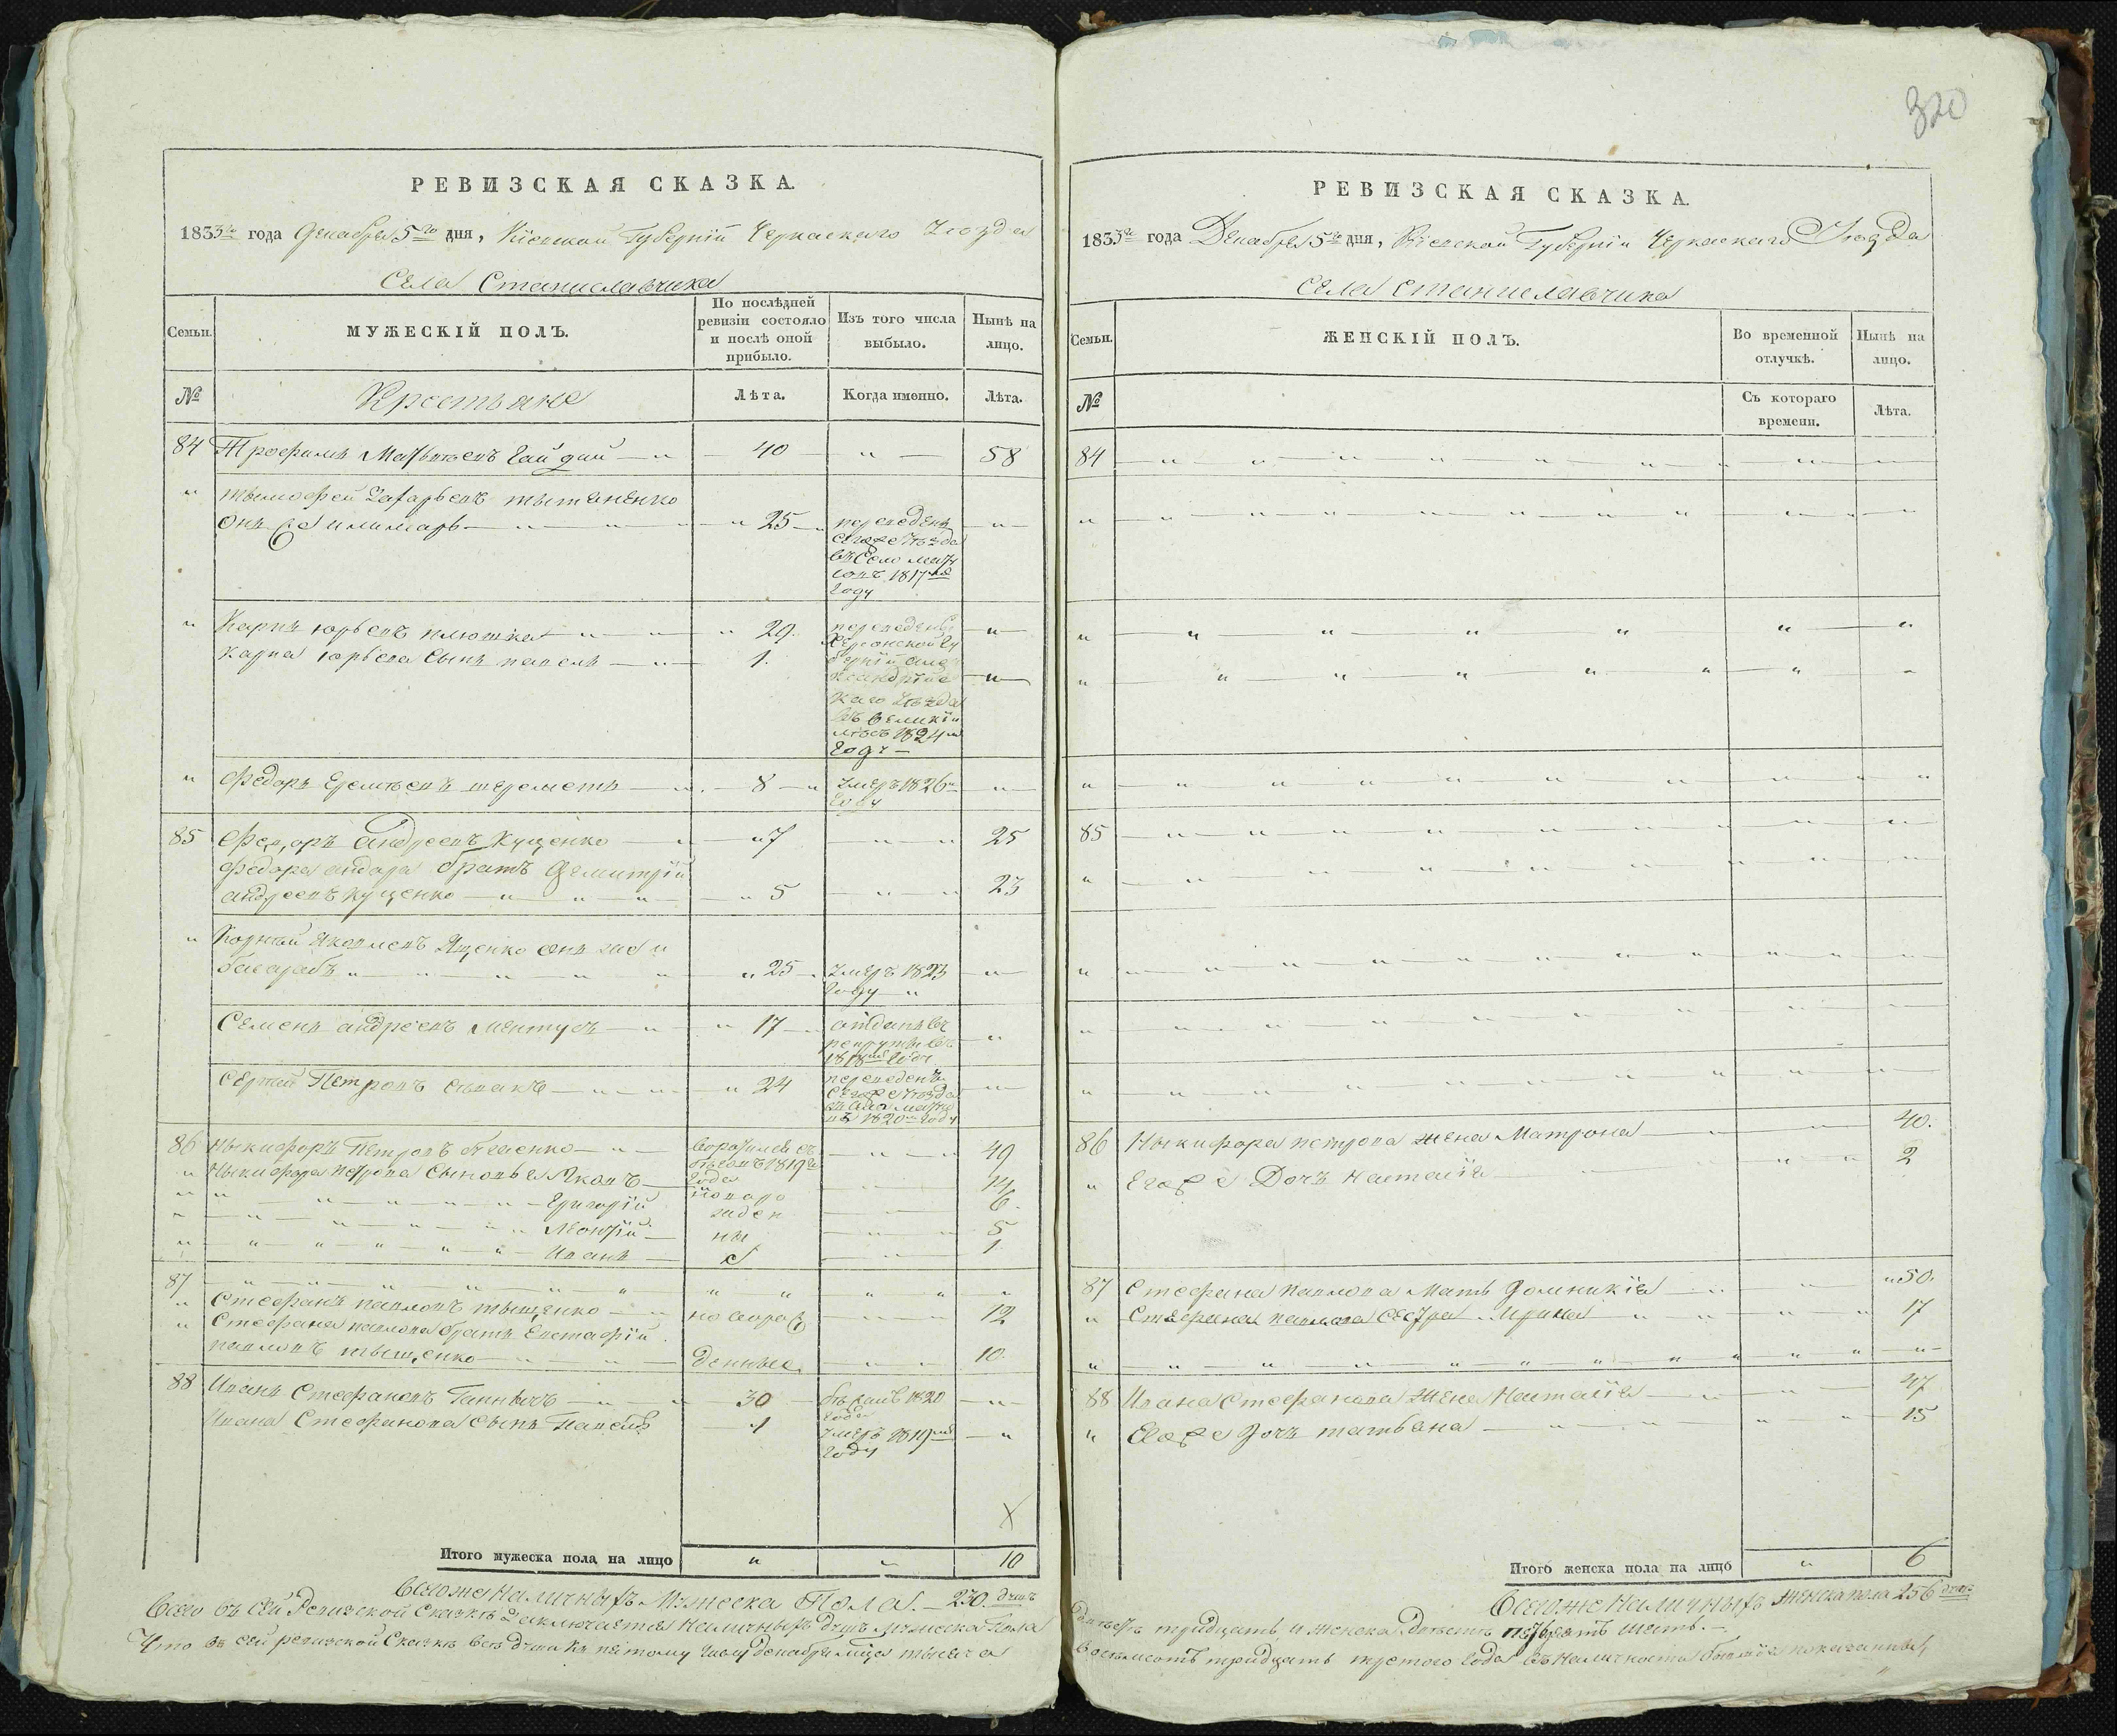 320
РЕВИЗСКАЯ СКАЗКА.
1833го года Декабря 5го дня, Кіевской Губерніи Черкаскаго Уезда
Села Станиславчика
Семьи.
МУЖЕСКІЙ ПОЛЪ.
По послѣдней ревизіи состояло и послѣ оной прибыло.
Изъ того числа выбыло.
Нынѣ на лицо.
№
Крестьяне
Лѣта.
Когда именно.
Лѣта.
84 Трофимъ Матвѣевъ Гайдай 40 58
тымофей Захарьевъ
онъ 25 переведенъ
сегоже Уѣзда
въ Село
1817го
году
Карпъ юрьевъ 29 переведены
Карпа юрьева Сынъ павелъ 1 Херсонской гу
берніи алек
сандрійс
каго Уѣзда
въ великій
1824го
году
Федоръ Еремѣевъ шереметъ 8 Умеръ 1826го
году
85 Федоръ андреевъ Куценко 7 25
Федора андрея братъ Демитрій
андреевъ Куценко 5 23
Корнѣй Яковлевъ Яценко онъ
25 Умеръ 1823
году
Семенъ андреевъ ментусъ 17 отданъ въ
рекруты въ
1818мъ годе
Сергей Петровъ 24 переведенъ
сегоже Уѣзда
1820го году
86 Ныкифоръ Петровъ 49
Ныкифора петрова Сыновья Яковъ 14
Григорій 6
Леонтій 5
Иванъ 1
воротился съ
бѣговъ 1819го
года
и новоро
жден
ны
е
87
Стефанъ павловъ тыщенко новоро 12
Стефана павлова братъ Евстафій
павловъ тыщенко жденные 10
88 Иванъ Стефановъ 30 бѣжалъ 1820
года
Ивана Стефанова сынъ Павелъ 1 Умеръ 1819мъ
году
X
Итого мужеска пола на лицо 10
Всегоже Наличныхъ Мужеска Пола. 230. душъ
Всего въ сей Ревизской Сказкѣ Заключается Наличныхъ Душъ Мужеска Пола
Что въ сей ревизской Сказкѣ всѣ Души къ пятому числу декабря мѣсяца тысяча
РЕВИЗСКАЯ СКАЗКА.
1833го года Декабря 5го дня, Кіевской Губерніи Черкаскаго Уезда
Села Станиславчика
Семьи.
ЖЕНСКІЙ ПОЛЪ.
Во временной отлучкѣ.
Нынѣ на лицо.
№
Съ котораго времени.
Лѣта.
84
85
86 Ныкифора петрова жена Матрона 40.
Егоже Дочъ Наталія 2
87 Стефана павлова Мать Домникія 50.
Стефана павлова Сестра Ирина 17
88 Ивана Стефанова Жена Наталія 47
Егоже Дочъ татьяна 15
Итого женска пола на лицо 6
Всегоже Наличныхъ женска пола 256 душъ
двѣсти тридцать и женска Двѣсти пятьдесятъ шесть.
восемьсотъ тридцать третого года въ Наличности бывшія показанны,